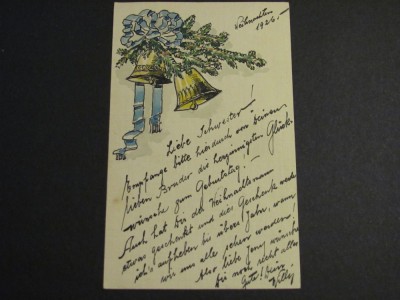 Weihnachten
1926.
Liebe Schwester!
Empfange bitte hierdurch von Deinem
lieben Bruder die herzinnigsten Glück-
wünsche zum Geburtstag!
Auch hat der Weihnachtsmann
etwas geschenkt und dies Geschenk werde
ich aufheben bis übers Jahr, wenn
wir uns alle sehen werden!
Also liebe wünsche
Dir noch recht alles
Gute! Dein
Willy